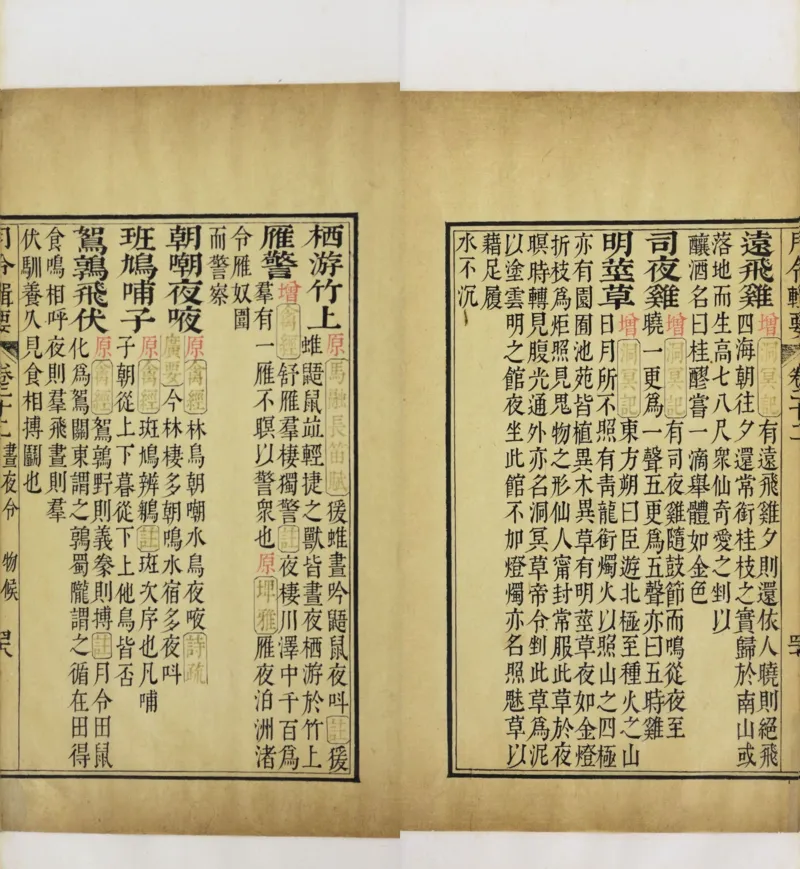 月令輯要 卷二十二
遠飛雞 增 洞冥記 有遠飛雞夕則還依人曉則絕飛
四海朝往夕還常銜桂枝之實歸於南山或
落地而生高七八尺衆仙奇愛之剉以
釀酒名曰桂醪嘗一滴舉體如金色
司夜雞 增 洞冥記 有司夜雞隨鼓節而鳴從夜至
曉一更爲一聲五更爲五聲亦曰五時雞
明莖草 增 洞冥記 東方朔曰臣遊北極至種火之山
日月所不照有靑龍銜燭火以照山之四極
亦有園囿池苑皆植異木異草有明莖草夜如金燈
折枝爲炬照見鬼物之形仙人甯封常服此草於夜
暝時轉見腹光通外亦名洞冥草帝令剉此草爲泥
以塗雲明之館夜坐此館不加燈燭亦名照魅草以
藉足履
水不沉
栖游竹上 原 馬融長笛賦 猨蜼晝吟鼯鼠夜呌 註 猨
蜼鼯鼠竝輕捷之獸皆晝夜栖游於竹上
雁警 增 禽經 舒雁羣棲獨警 註 夜棲川澤中千百爲
羣有一雁不瞑以警衆也 原 埤雅 雁夜泊洲渚
令雁奴圍
而警察
朝嘲夜㖡 原 禽經 林鳥朝嘲水鳥夜㖡 註疏
廣要 今林棲多朝鳴水宿多夜呌
班鳩哺子 原 禽經 班鳩辨鶹 註 班次序也凡哺
子朝從上下暮從下上他鳥皆否
鴽鶉飛伏 原 禽經 鴽鶉野則義豢則搏 註 月令田鼠
化爲鴽關東謂之鶉蜀隴謂之循在田得
食鳴相呼夜則羣飛晝則羣
伏馴養久見食相搏鬭也
月令輯要 卷二十二 晝夜令 物候